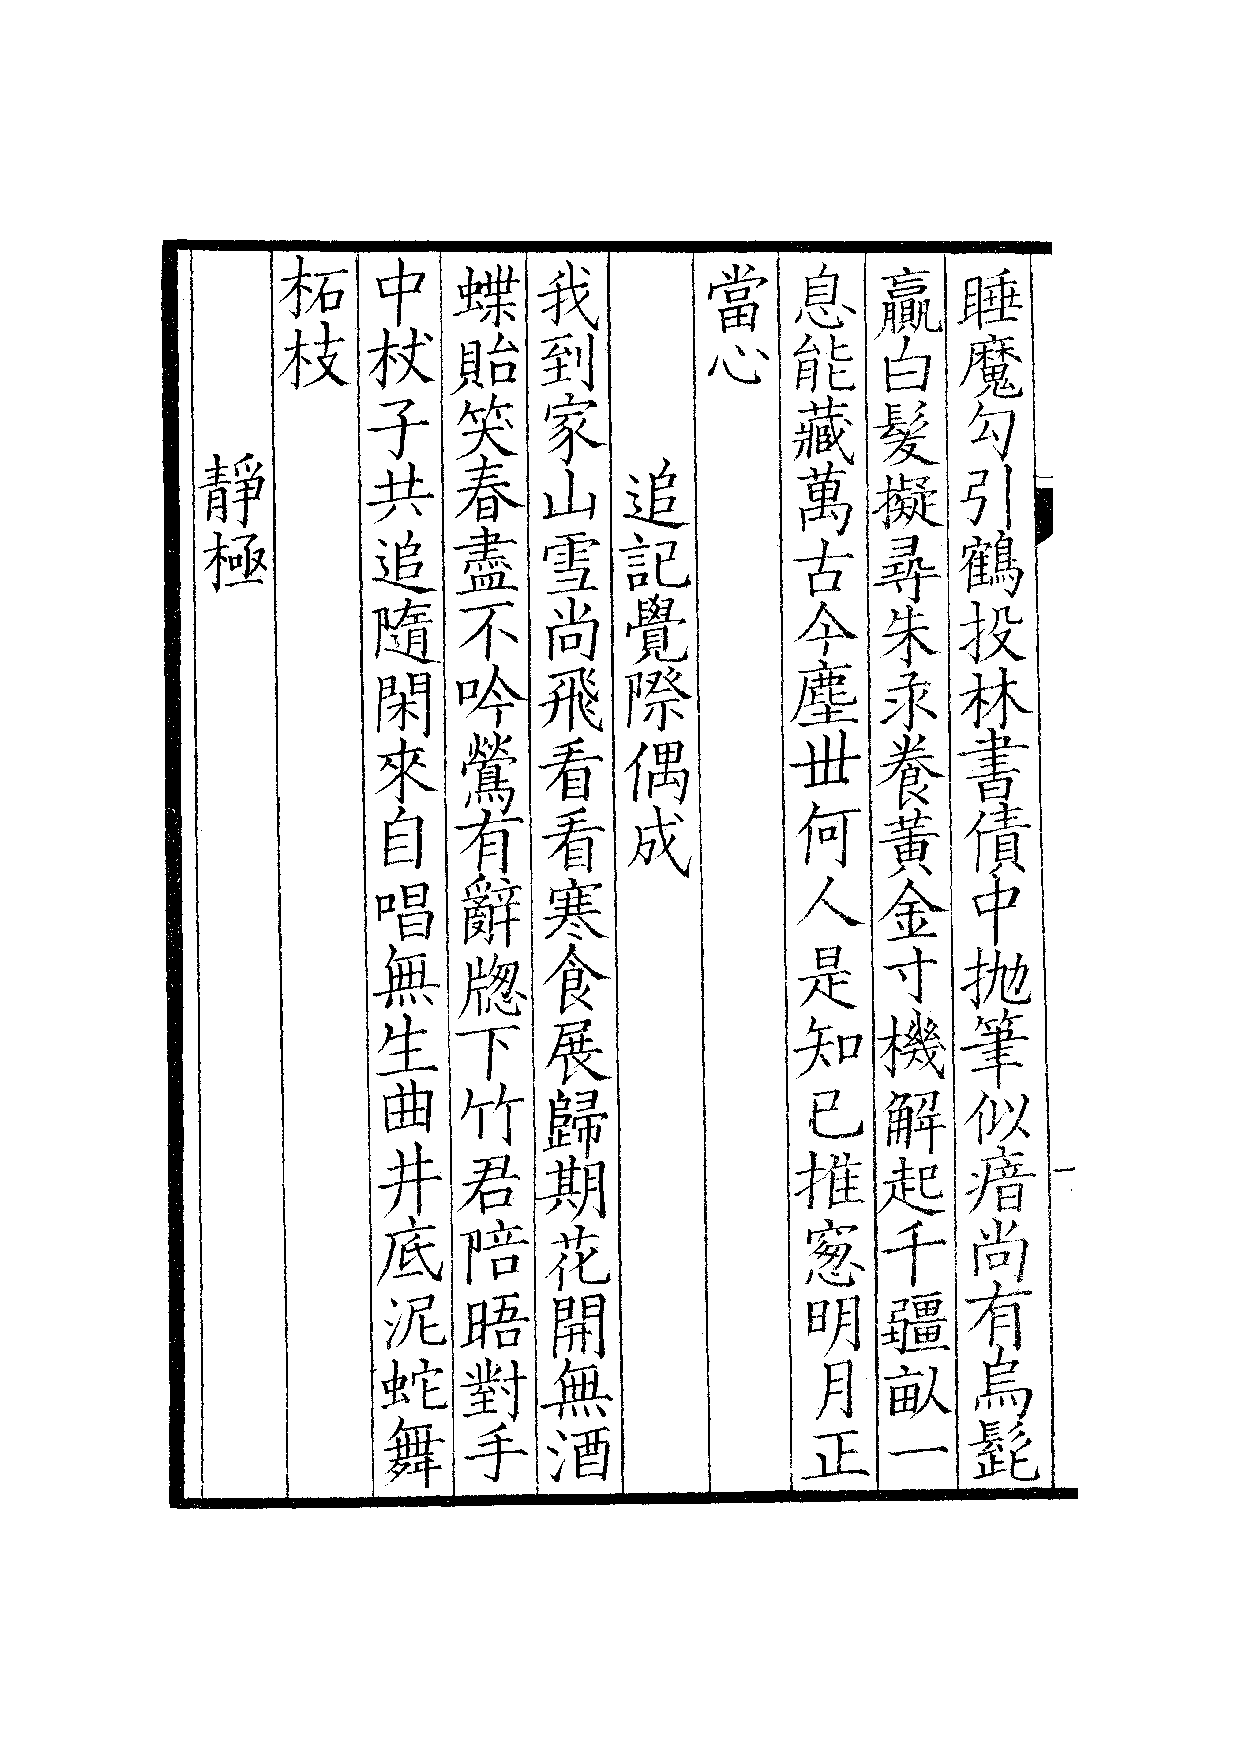 睡魔勾引鶴投林書債中抛筆似瘖尚有烏髭
贏白髮擬尋朱汞養黃金寸機解起千疆畝一
息能藏萬古今塵世何人是知已推窓明月正
當心
追記覺際偶成
我到家山雪尚飛看看寒食展歸期花開無酒
蝶貽笑春盡不吟鶯有辭牕下竹君陪晤對手
中杖子共追隨閑來自唱無生曲井底泥蛇舞
柘枝
靜極